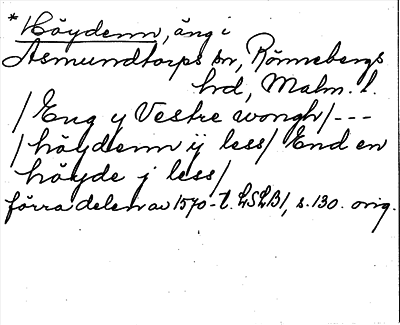 *Höydenn, äng i
Asmundtorps sn, Rönnebergs
hrd, Malm. l.
/Eng y Vestre wongh/---
/höydenn ij less/ End en
höyde j less/
förra delen av 1570-t. LSLB1, s. 130. orig.